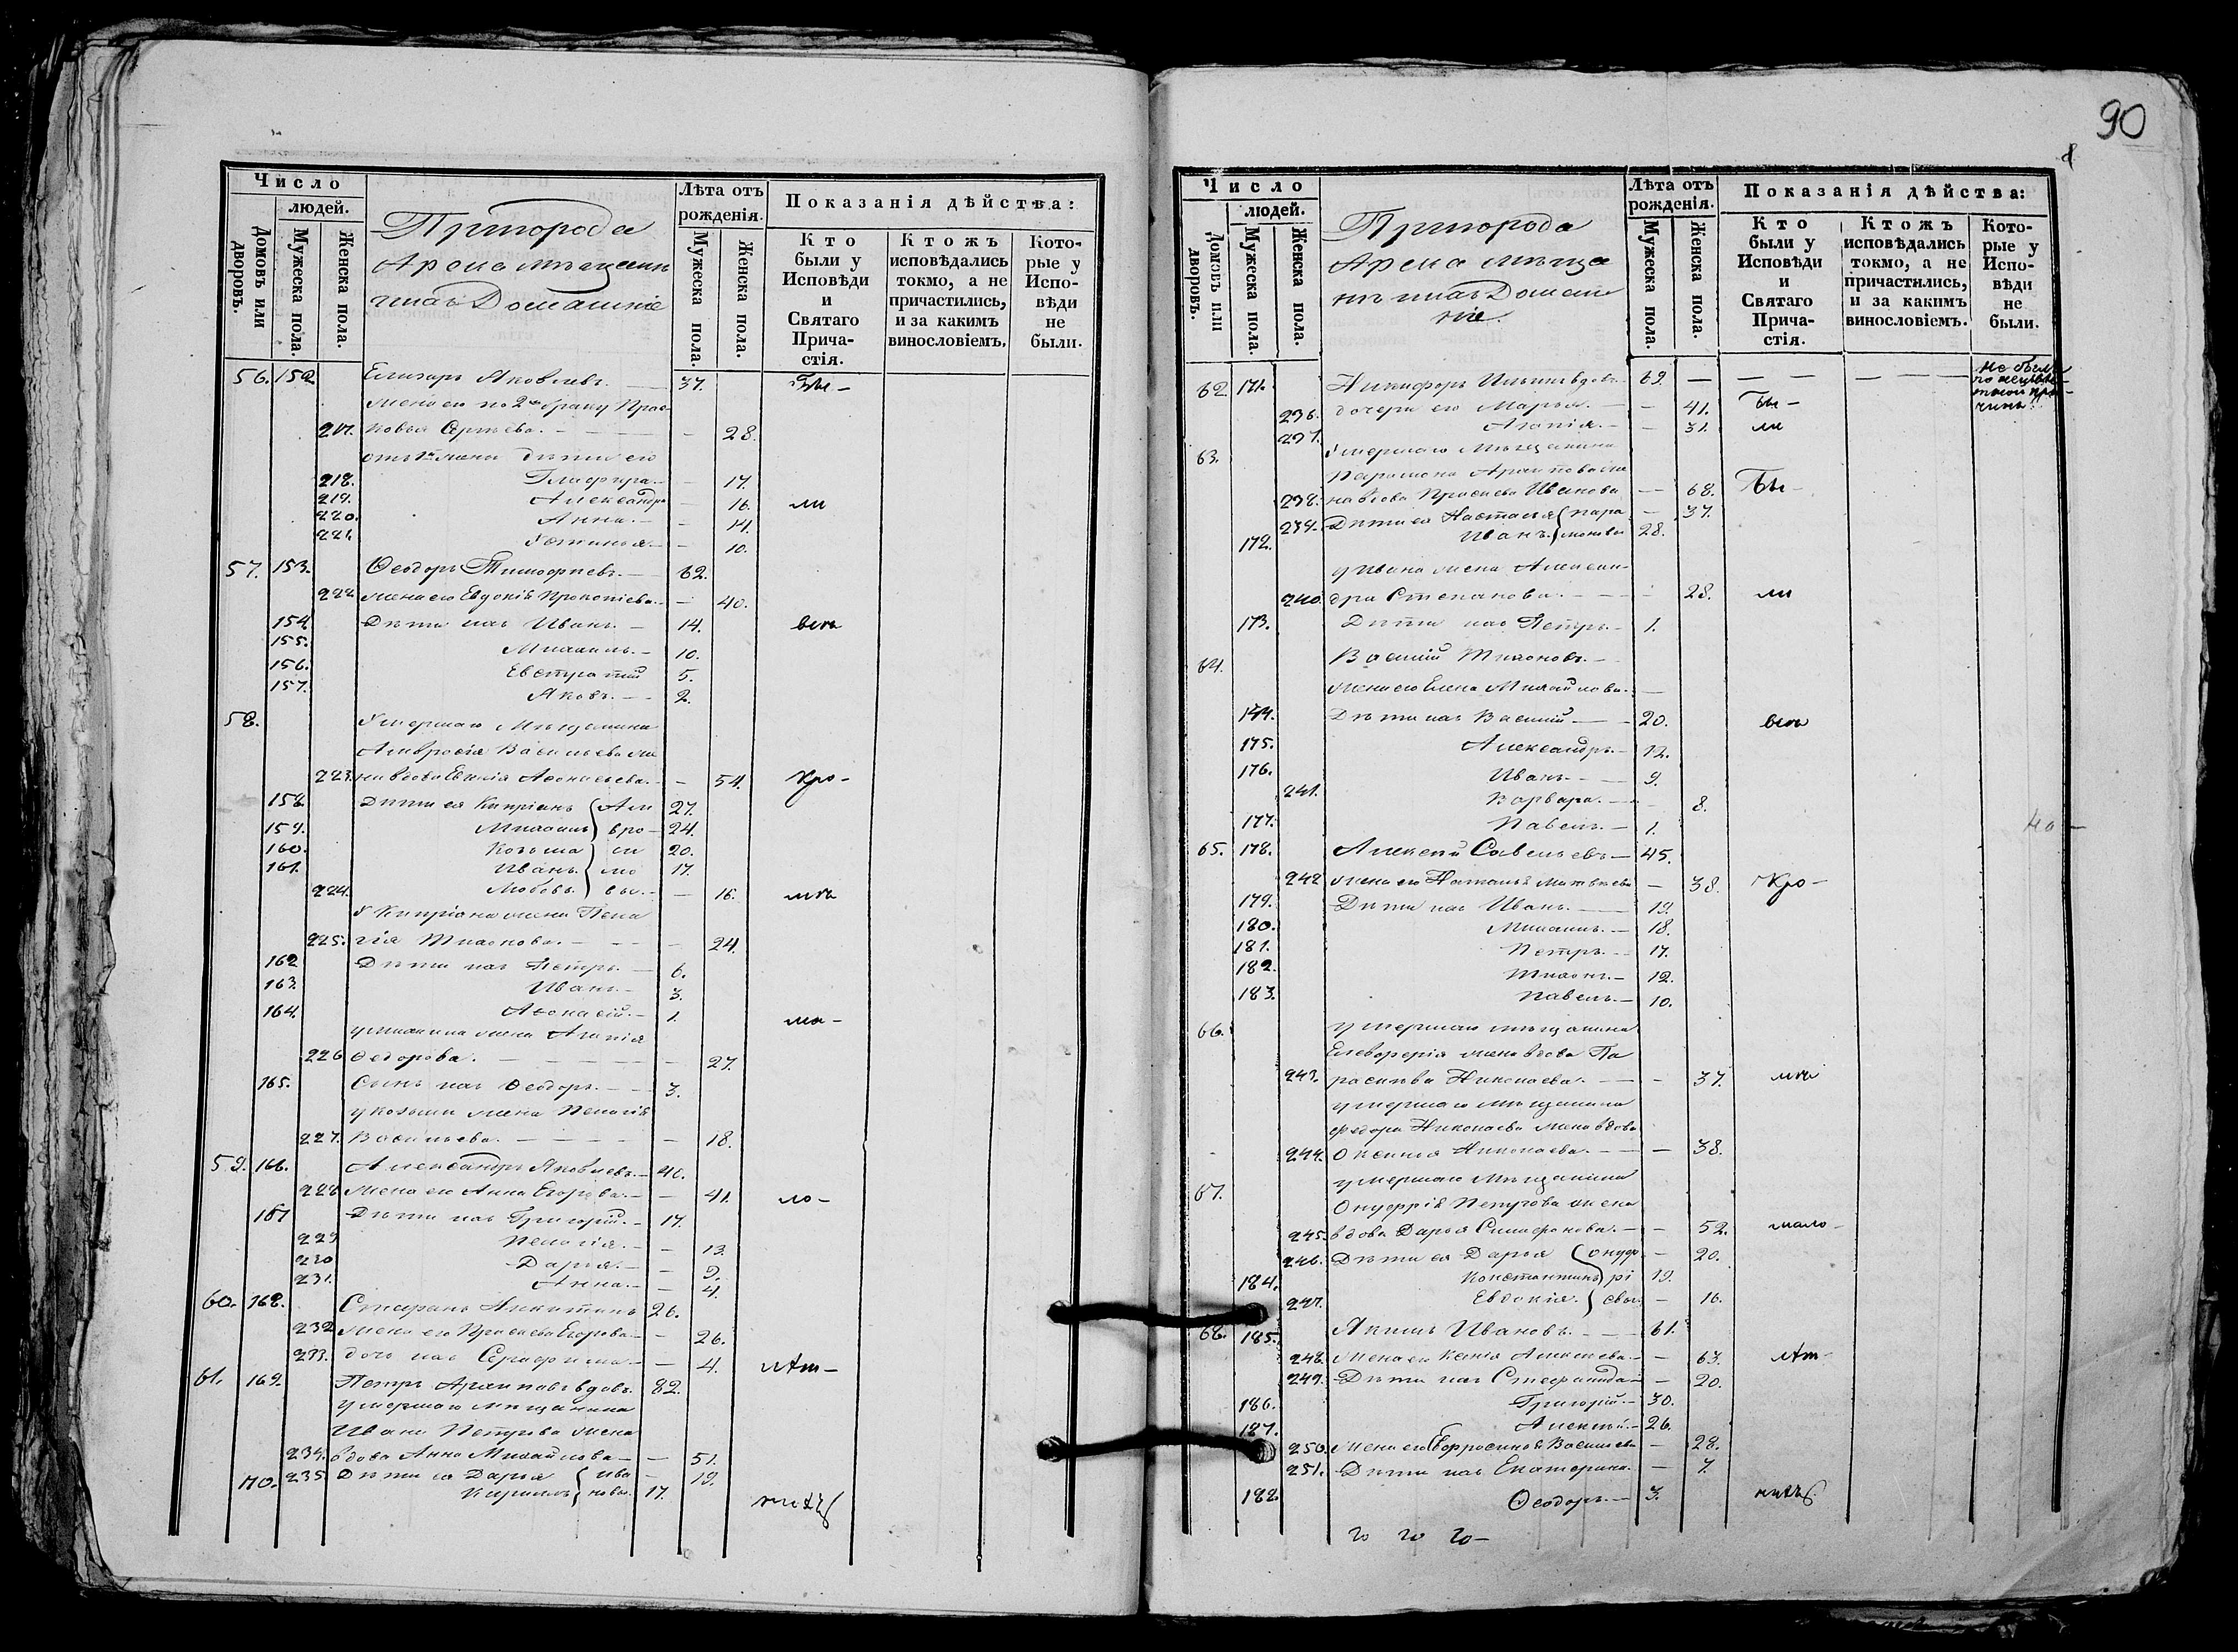 90
Число
людей.
Домовъ или дворовъ.
Мужеска пола.
Женска пола.
Пригорода
Арска мѣщанѣ
ихъ Домашніе
Лѣта отъ рожденія.
Мужеска пола.
Женска пола.
Показанія дѣйства:
Кто были у Исповѣди и Святаго Прича-стія.
Ктожъ исповѣдались токмо, а не причастились, и за какимъ винословіемъ.
Кото-рые у Испо-вѣди не были.
56. 152 Елизаръ Яковлевъ. 37. Бы-
Жена его по 2му браку Прос-
217. ковья Сергѣева. 28.
отъ 1й жены дѣти его
218. Глафира 17.
219. Александра 16. ли
220. Анна. 14.
221. Устинья 10.
57. 153. Ѳеодоръ Тимофѣевъ. 62.
222 жена его Евдокія Прокопіева. 40.
154 Дѣти ихъ Иванъ. 14. всѣ
155. Михаилъ. 10.
156. Евстратій 5.
157. Яковъ. 2.
58. Умершаго Мѣщанина
Амвросія Васильева же
223. на вдова Евгенія Аѳонасьева. 54. Кро-
158. Дѣти ея Кипріянъ (Ам 27.
159. Михаилъ вро 24.
160. Козьма си 20.
161. Иванъ. 17.
224. Любовь. вы. 16. мѣ
У Кипріяна жена Пела
225. гія Тихонова. 24.
162 Дѣти ихъ Петръ. 6.
163 Иванъ. 3.
164. Аѳонасій. 1. ма-
у Михаила жена Агапія
226 Ѳедорова. 27.
165. Сынъ ихъ Ѳеодоръ. 3.
у Козьмы жена Пелагія
227. Васильева. 18.
59. 166. Александръ Яковлевъ. 40.
228 Жена его Анна Егорова. 41. ло-
167 Дѣти ихъ Григорій. 17.
229 Пелагія. 13.
230 Дарья. 9.
231. Анна. 4.
60. 168. Стефанъ Никитинъ 26.
232 Жена его Просковья Егорова 26.
233. дочь ихъ Серафима 4. лѣт-
61. 169. Петръ Архиповъ вдовъ. 82.
умершаго мѣщанина
Ивана Петрова жена
234. вдова Анна Михайлова 51.
235 Дѣти ея Дарья (Ива 19.
170. Кириллъ новы. 17. нихъ
Число
людей.
Домовъ или дворовъ.
Мужеска пола.
Женска пола.
Пригорода
Арска мѣща
нѣ ихъ Домаш
ніе.
Лѣта отъ рожденія.
Мужеска пола.
Женска пола.
Показанія дѣйства:
Кто были у Исповѣди и Святаго Прича-стія.
Ктожъ исповѣдались токмо, а не причастились, и за какимъ винословіемъ.
Кото-рые у Испо-вѣди не были.
62. 171. Никифоръ Ильинъ вдовъ 69. Не былъ
236. дочери его Марья. 41. Бы-
237. Агапія. 31. ли
63. Умершаго Мѣщанина
Парамона Архипова же
238. на вдова Просковья Иванова 68. Бы-
239. Дѣти ея Настасья (Пара 37.
172. Иванъ. моновы 28.
у Ивана жена Алексан-
240 дра Степанова. 28. ли
173. Дѣти ихъ Петръ. 1.
64. Василій Тихоновъ.
жена его Елена Михайлова.
174. Дѣти ихъ Василій 20. всѣ
175. Александръ. 12.
176. Иванъ. 9.
241. Варвара. 8.
177. Павелъ. 1.
65. 178. Алексѣй Савельевъ 45.
242 жена его Наталья Матвѣева 38. Кро-
179. Дѣти ихъ Иванъ. 19.
180. Михаилъ. 18.
181. Петръ. 17.
182. Тихонъ. 12.
183. Павелъ. 10.
66. умершаго мѣщанина
Елевѳерія жена вдова Па
243. расковья Николаева. 37. мѣ
умершаго мѣщанина
Ѳедора Николаева жена вдова
244. Оксинья Николаева. 38.
67. умершаго Мѣщанина
Онуфрія Петрова жена
245. вдова Дарья Симеонова. 52. мало-
246. Дѣти ея Дарья (Онуф 20.
184. Константинъ рі 19.
247. Евдокія. евы. 16.
68. 185. Акимъ Ивановъ. 61.
248. Жена его Ксенія Алексѣева. 63. лѣт-
249. Дѣти ихъ Стефанида 20.
186. Григорій. 30.
187. Алексѣй. 26.
250. Жена его Евфросинья Васильева 28.
251. Дѣти ихъ Екатерина. 7.
188 Ѳеодоръ. 3. нихъ